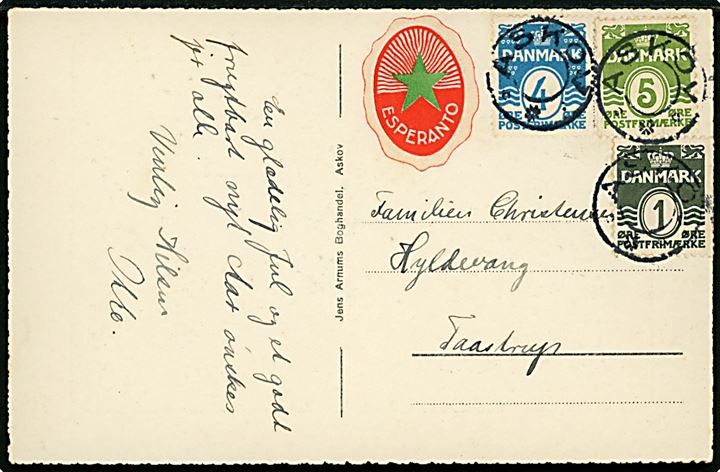 En glædelig Jul og et godt
frugtbart nyt Aar ønskes
alle.
Venlig Hilsen
Jens Arnums Boghandel. Askov
ESPERANTO
ASKOV
DANMARK
4
ØRE ØRE
POSTFRIMÆRKE
ASKOV
DANMARK
5
ØRE ØRE
POSTFRIMÆRKE
ASKOV
DANMARK
1
ØRE ØRE
POSTFRIMÆRKE
Familien Christensen
Hyldevang
Taastrup